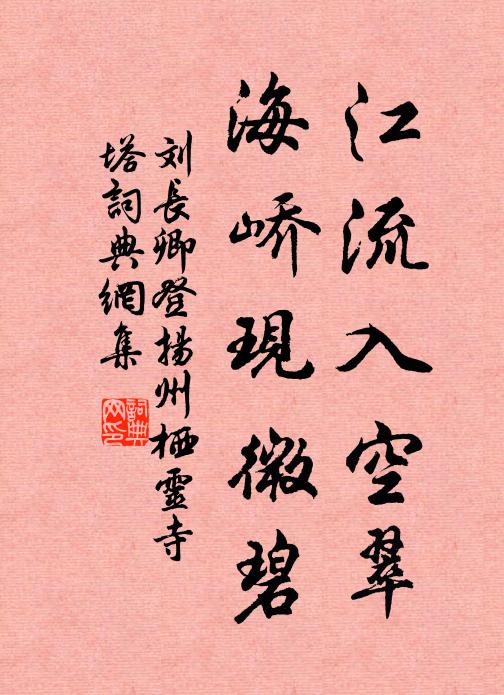 江流入空翠
海峤現微碧
刘長卿登揚州栖靈寺
塔詞典網集
詞典
网印